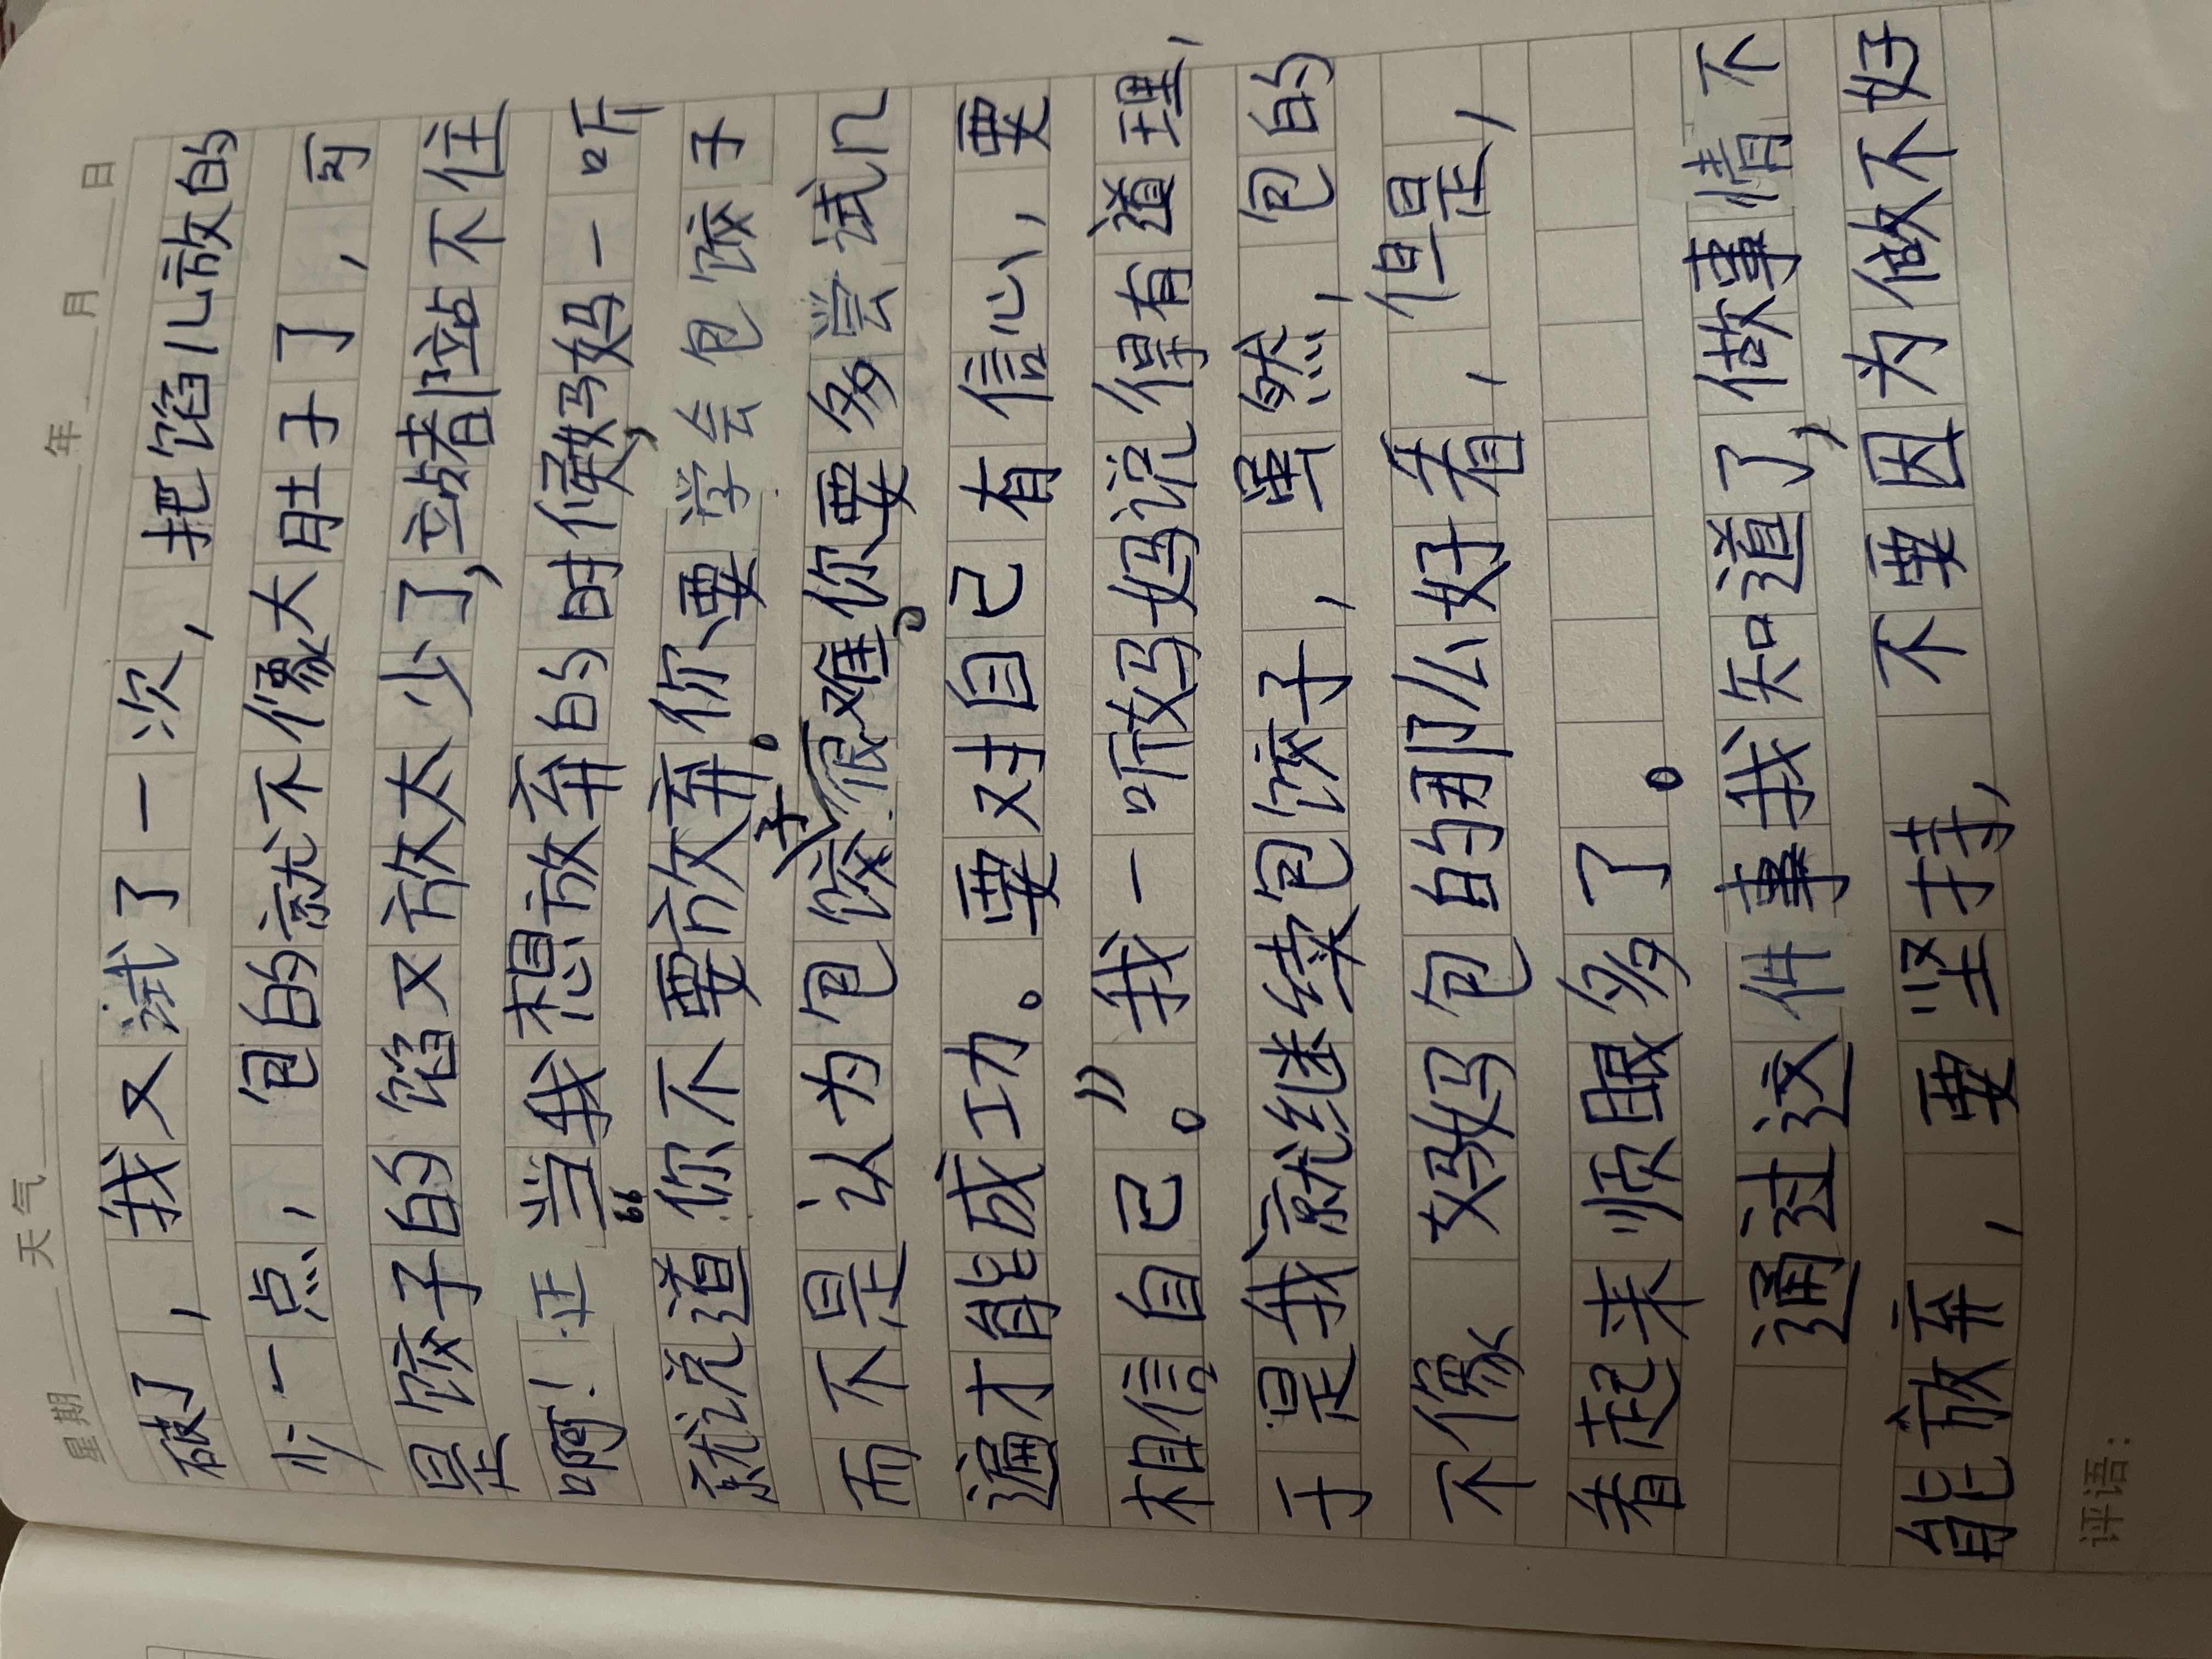 星期 天气 年 月 日
破了，我又试了一次，把馅儿放的
少一点，包的就不像大肚子了，可
是饺子的馅又放太少了，立站着站不住
啊！正当我想放弃的时候，妈妈一听
就说道“你不要放弃你要学会包饺子。
而不是认为包饺子很难。你要多尝试几
遍才能成功。要对自己有信心，要
相信自己。”我一听妈妈说得有道理，
于是我就继续包饺子，虽然，包的
不像妈妈包的那么好看，但是，
看起来顺眼多了。
通过这件事我知道了，做事情不
能放弃，要坚持，不要因为做不好
评语：